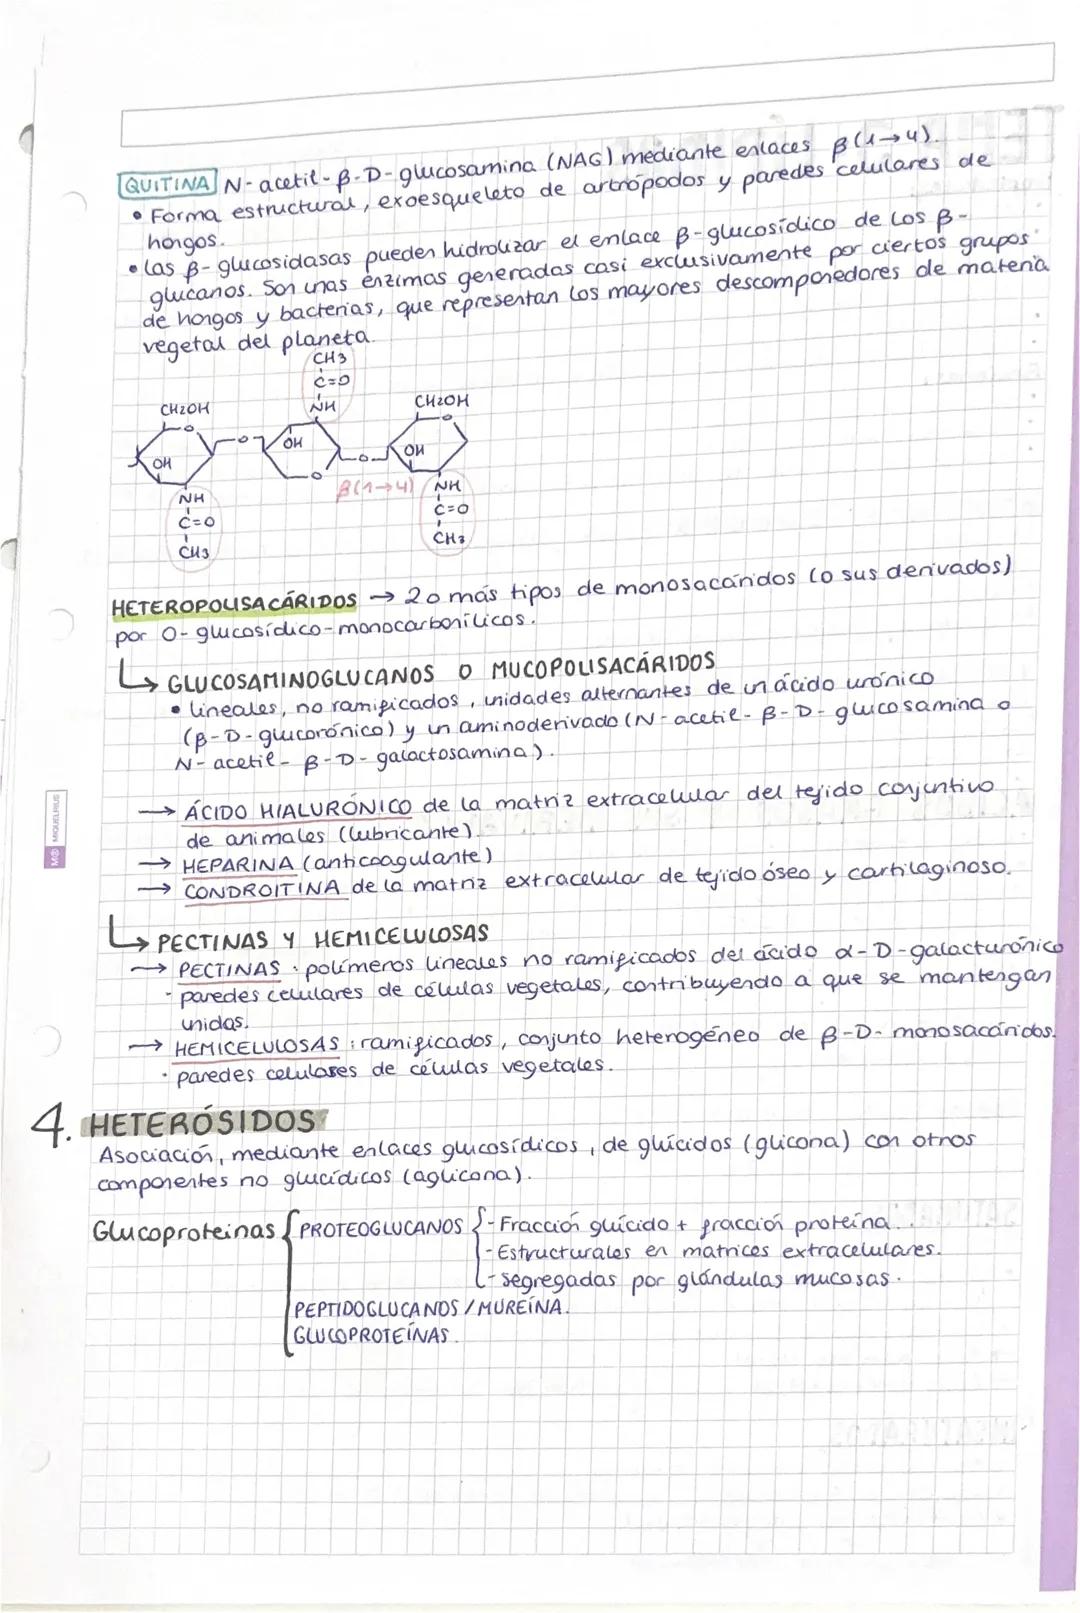 QUITINA N-acetil-β-D-glucosamina (NAG) mediante enlaces β(1→4).
• Forma estructural, exoesqueleto de artrópodos y paredes celulares de
hongos.
• las β-glucosidasas pueden hidrolizar el enlace β-glucosídico de los β-
glucanos. Son unas enzimas generadas casi exclusivamente por ciertos grupos
de hongos y bacterias, que representan los mayores descomponedores de materia
vegetal del planeta.
CH3
C=O
NH
CH2OH
CH2OH
OH
O
O
OH
O
O
O
OH
NH
C=O
CH3
β(1→4)
NH
C=O
CH3
HETEROPOLISACÁRIDOS → 2 o más tipos de monosacáridos (o sus derivados)
por O-glucosídico-monocarbonílicos.
↳ GLUCOSAMINOGLUCANOS O MUCOPOLISACÁRIDOS
• lineales, no ramificados, unidades alternantes de un ácido urónico
(β-D-glucorónico) y un aminoderivado (N-acetil-β-D-glucosamina o
N-acetil-β-D-galactosamina).
→ ÁCIDO HIALURÓNICO de la matriz extracelular del tejido conjuntivo
de animales (lubricante).
→ HEPARINA (anticoagulante)
→ CONDROITINA de la matriz extracelular de tejido óseo y cartilaginoso.
↳ PECTINAS Y HEMICELULOSAS
→ PECTINAS: polímeros lineales no ramificados del ácido α-D-galacturónico
- paredes celulares de células vegetales, contribuyendo a que se mantengan
unidas.
→ HEMICELULOSAS: ramificados, conjunto heterogéneo de β-D-monosacáridos.
· paredes celulares de células vegetales.
4. HETERÓSIDOS
Asociación, mediante enlaces glucosídicos, de glúcidos (glicona) con otros
componentes no glucídicos (aglicona).
Glucoproteinas { PROTEOGLUCANOS { - Fracción glúcido + fracción proteína.
- Estructurales en matrices extracelulares.
- Segregadas por glándulas mucosas.
PEPTIDOGLUCANOS / MUREÍNA.
GLUCOPROTEÍNAS.
MIQUELRIUS